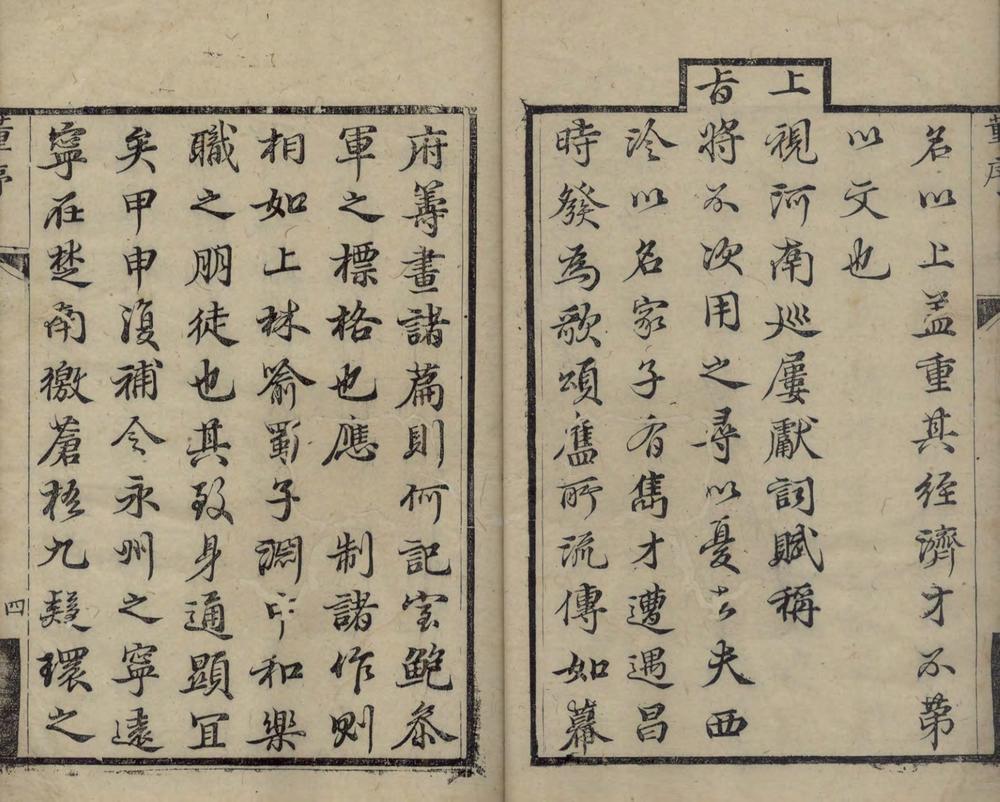 董序
名以上盖重其经濟才不第
以文也
上視河南巡屢獻詞賦稱
旨將不次用之尋以憂去夫西
泠以名家子有雋才遭遇昌
時發為歌頌舊所流傳如幕
府籌畫諸篇則何記室鮑叅
軍之標格也應 制諸作則
相如上林喻蜀子淵中和樂
職之朋徒也其致身通顯宜
矣甲申復補令永州之寧遠
寧在楚南徼蒼梧九疑環之
董序 四